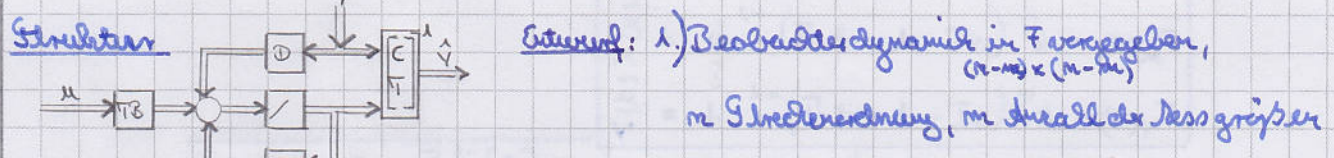 Struktur
Entwurf: 1.) Beobachterdynamik in F vorgegeben,
(n-m) x (n-m)
n Streckenordnung, m Anzahl der Messgrößen
D
C
T
-1
ŷ
u
TB